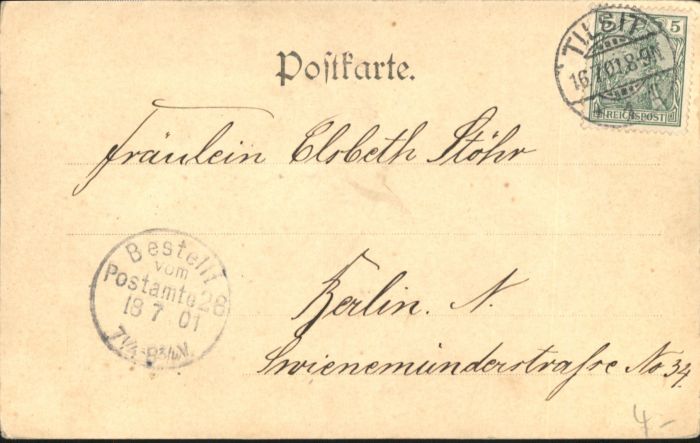 Postkarte.
5
REICHSPOST
TILSIT
16.7.01.8-9N
Fräulein Elsbeth Stöhr
Bestellt
vom
Postamte 28
18 7 01
Berlin. N.
Swienemünderstrasse No 34.
4-